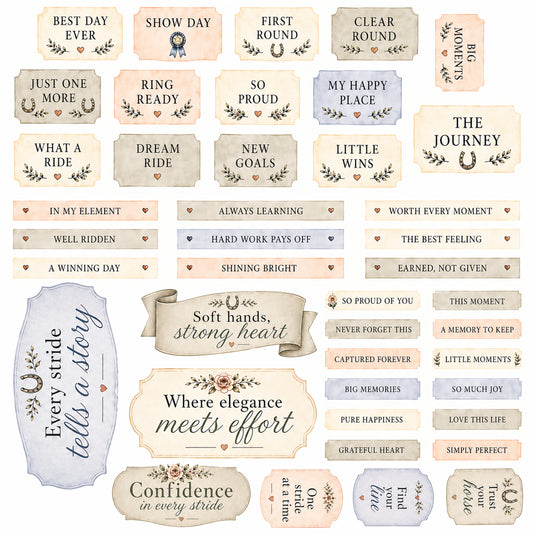 BEST DAY
EVER
SHOW DAY
FIRST
ROUND
CLEAR
ROUND
BIG
MOMENTS
JUST ONE
MORE
RING
READY
SO
PROUD
MY HAPPY
PLACE
THE
JOURNEY
WHAT A
RIDE
DREAM
RIDE
NEW
GOALS
LITTLE
WINS
IN MY ELEMENT
ALWAYS LEARNING
WORTH EVERY MOMENT
WELL RIDDEN
HARD WORK PAYS OFF
THE BEST FEELING
A WINNING DAY
SHINING BRIGHT
EARNED, NOT GIVEN
Every stride
tells a story
Soft hands,
strong heart
SO PROUD OF YOU
THIS MOMENT
NEVER FORGET THIS
A MEMORY TO KEEP
CAPTURED FOREVER
LITTLE MOMENTS
BIG MEMORIES
SO MUCH JOY
PURE HAPPINESS
LOVE THIS LIFE
GRATEFUL HEART
SIMPLY PERFECT
Where elegance
meets effort
Confidence
in every stride
One
stride
at a time
Find
your
line
Trust
your
horse